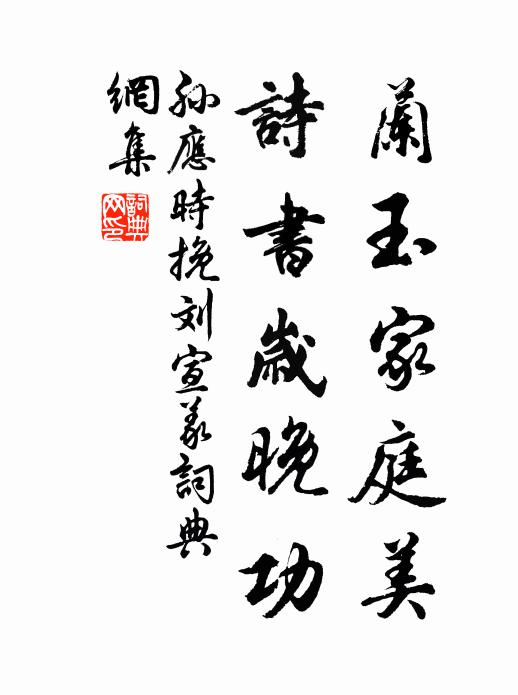 蘭玉家庭美
詩書歲晚功
孙應時挽刘宣義詞典
網集
詞典网印